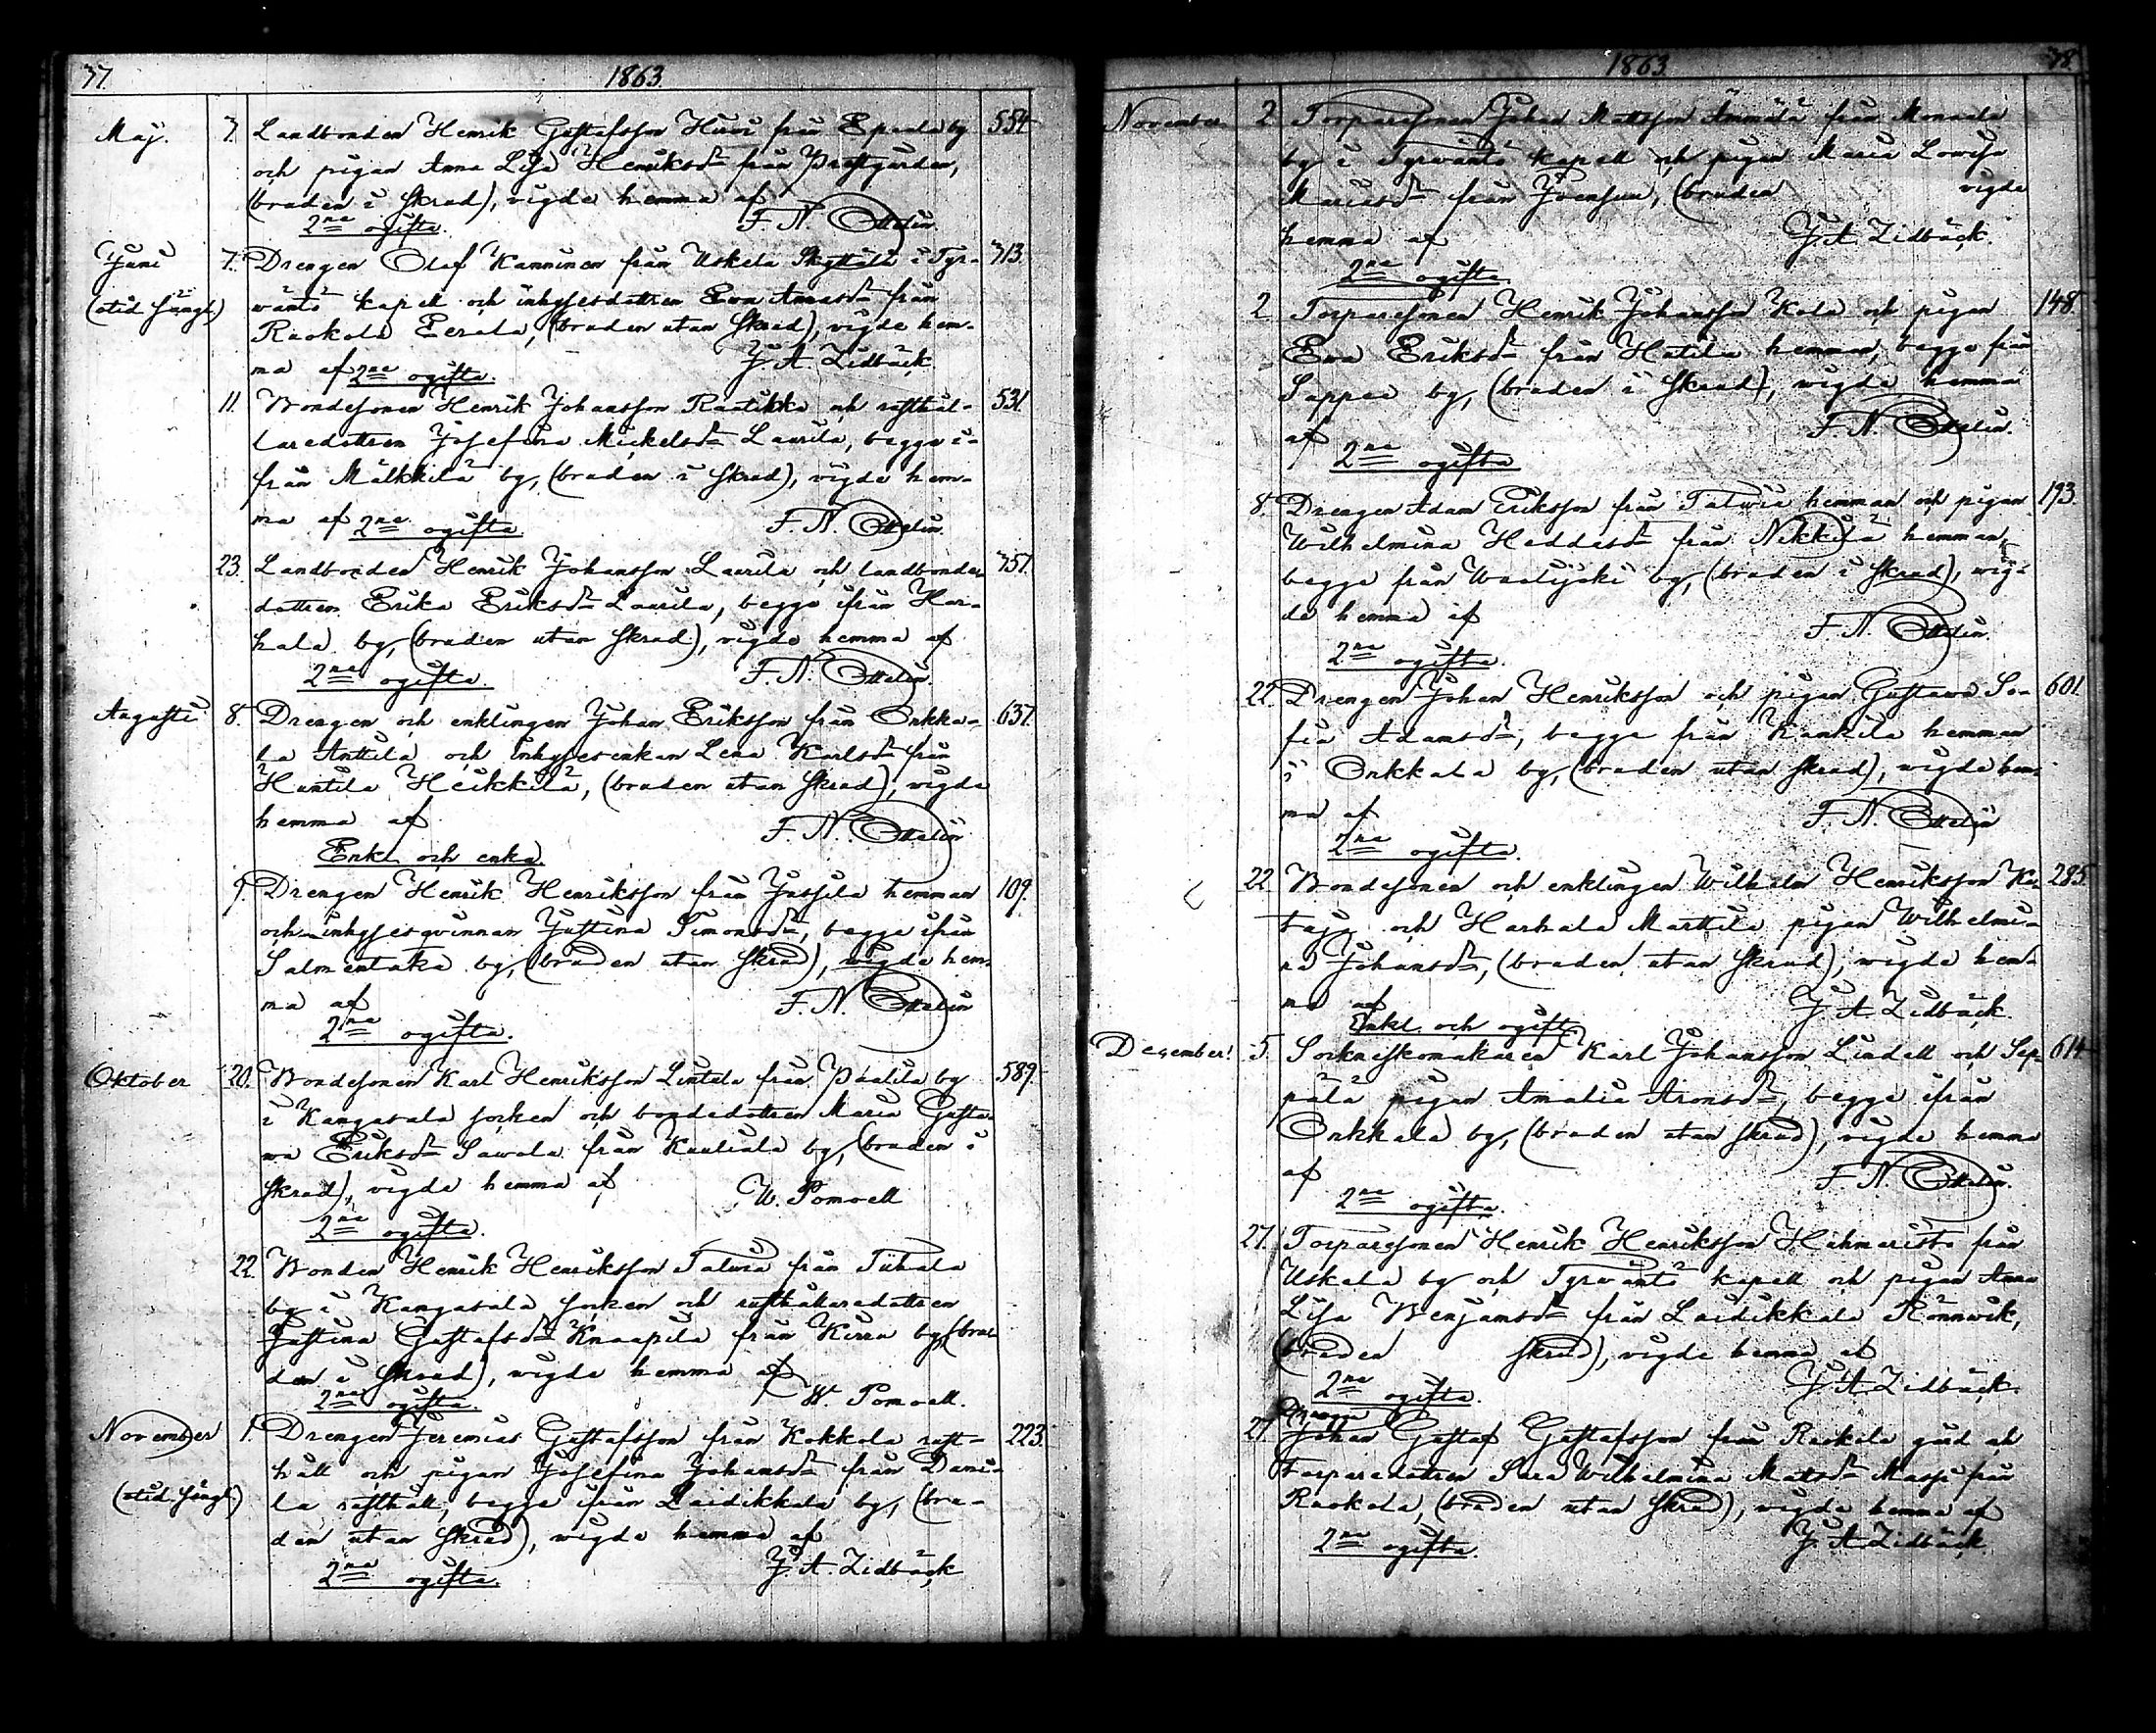 37. 1863.
Maj. 7. Landbonden Henrik Gustafsson Hirvi från Epaala by 554
och pigan Anna Lisa Henriksdr från Prestgården,
(bruden i skrud), vigde hemma af
2ne ogifta. F. N. Ottelin.
Juni 7. Drengen Olof Kanninen från Uskila Skyttälä i Tyr- 713.
(utid. Jungl.) wäntö kapell och inhysesdottren Ewa Annasdr från
Raokola Eerola, (bruden utan skrud), vigde hem-
ma af 2ne ogifta. J. A. Lidbäck
11. Bondesonen Henrik Johansson Raatikka och rusthål- 531.
laredottren Josefina Mickelsdr Laurila, begge i-
från Mälkkilä by, (bruden i skrud), vigde hem-
ma af 2ne ogifta. F. N. Ottelin.
23. Landbonden Henrik Johansson Laurila och landbonde- 751.
dottren Erika Eriksdr Laurila, begge ifrån Har-
hala by, (bruden utan skrud), vigde hemma af
2ne ogifta. F. N. Ottelin.
Augusti 8. Drengen och enklingen Johan Eriksson från Onkka- 637.
la Anttila och inhysesenkan Lena Karlsdr från
Huntila Heikkilä, (bruden utan skrud), vigde
hemma af F. N. Ottelin
Enkl. och enka.
9. Drengen Henrik Henriksson från Jussila hemman 109.
och inhysesqvinnan Justina Simonsdr, begge ifrån
Salmentaka by, (bruden utan skrud), vigde hem-
ma af F. N. Ottelin
2ne ogifta.
Oktober 20. Bondesonen Karl Henriksson Lintula från Paalila by 589.
i Kangasala socken och bondedottren Maria Gusta-
wa Eriksdr Sawola från Kuuliala by, (bruden i
skrud), vigde hemma af W. Pomoell
2ne ogifta.
22. Bonden Henrik Henriksson Talwia från Tiihala
by i Kangasala socken och rusthållaredottren
Justina Gustafsdr Knaapila från Kirra by, (bru-
den i skrud), vigde hemma af
2ne ogifta. W. Pomoell.
November 1. Drengen Jeremias Gustafsson från Kokkola rust- 223.
(utid. Jungl.) håll och pigan Josefina Johansdr från Dani-
la rusthåll, begge ifrån Laidikkala by, (bru-
den utan skrud), vigde hemma af
2ne ogifta. J. A. Lidbäck
1863. 38.
November 2. Torparesonen Johan Mattsson Ammälä från Monaala
by i Tyrwäntö kapell och pigan Maria Lowisa
Mariasdr från Joensuu, (bruden vigde
hemma af J. A. Lidbäck.
2ne ogifta.
2. Torparesonen Henrik Johansson Kola och pigan 148.
Ewa Eriksdr från Hatila hemman, begge från
Sappee by, (bruden i skrud), vigde hemma
af F. N. Ottelin.
2ne ogifta
8. Drengen Adam Eriksson från Talwia hemman och pigan 193.
Wilhelmina Heddasdr från Nikkilä hemman,
begge från Waalijoki by, (bruden i skrud), vig-
de hemma af F. N. Ottelin.
2ne ogifta.
22. Drengen Johan Henriksson och pigan Gustawa So- 601.
fia Adamsdr, begge från Kankila hemman
i Onkkala by, (bruden utan skrud), vigde hem-
ma af F. N. Ottelin
2ne ogifta.
22. Bondesonen och enklingen Wilhelm Henriksson 285.
och Harhala Marttila pigan Wilhelmi-
na Johansdr, (bruden utan skrud), vigde hem-
ma af J. A. Lidbäck.
Enkl. och ogift.
December 5. Sockneskomakaren Karl Johansson Lindell och Sep- 614
pälä pigan Amalia Aronsdr, begge ifrån
Onkkala by, (bruden utan skrud), vigde hemma
af F. N. Ottelin.
2ne ogifta.
27. Torparesonen Henrik Henriksson Hahmaristo från
Uskala by och Tyrwäntö kapell och pigan Anna
Lisa Benjamsdr från Laidikkala Rönnwik,
(bruden skrud), vigde hemma af
2ne ogifta. J. A. Lidbäck.
27. Johan Gustaf Gustafsson från Raikila gård och
torparedottren Sara Wilhelmina Matsdr från
Raokola, (bruden utan skrud), vigde hemma af
2ne ogifta. J. A. Lidbäck